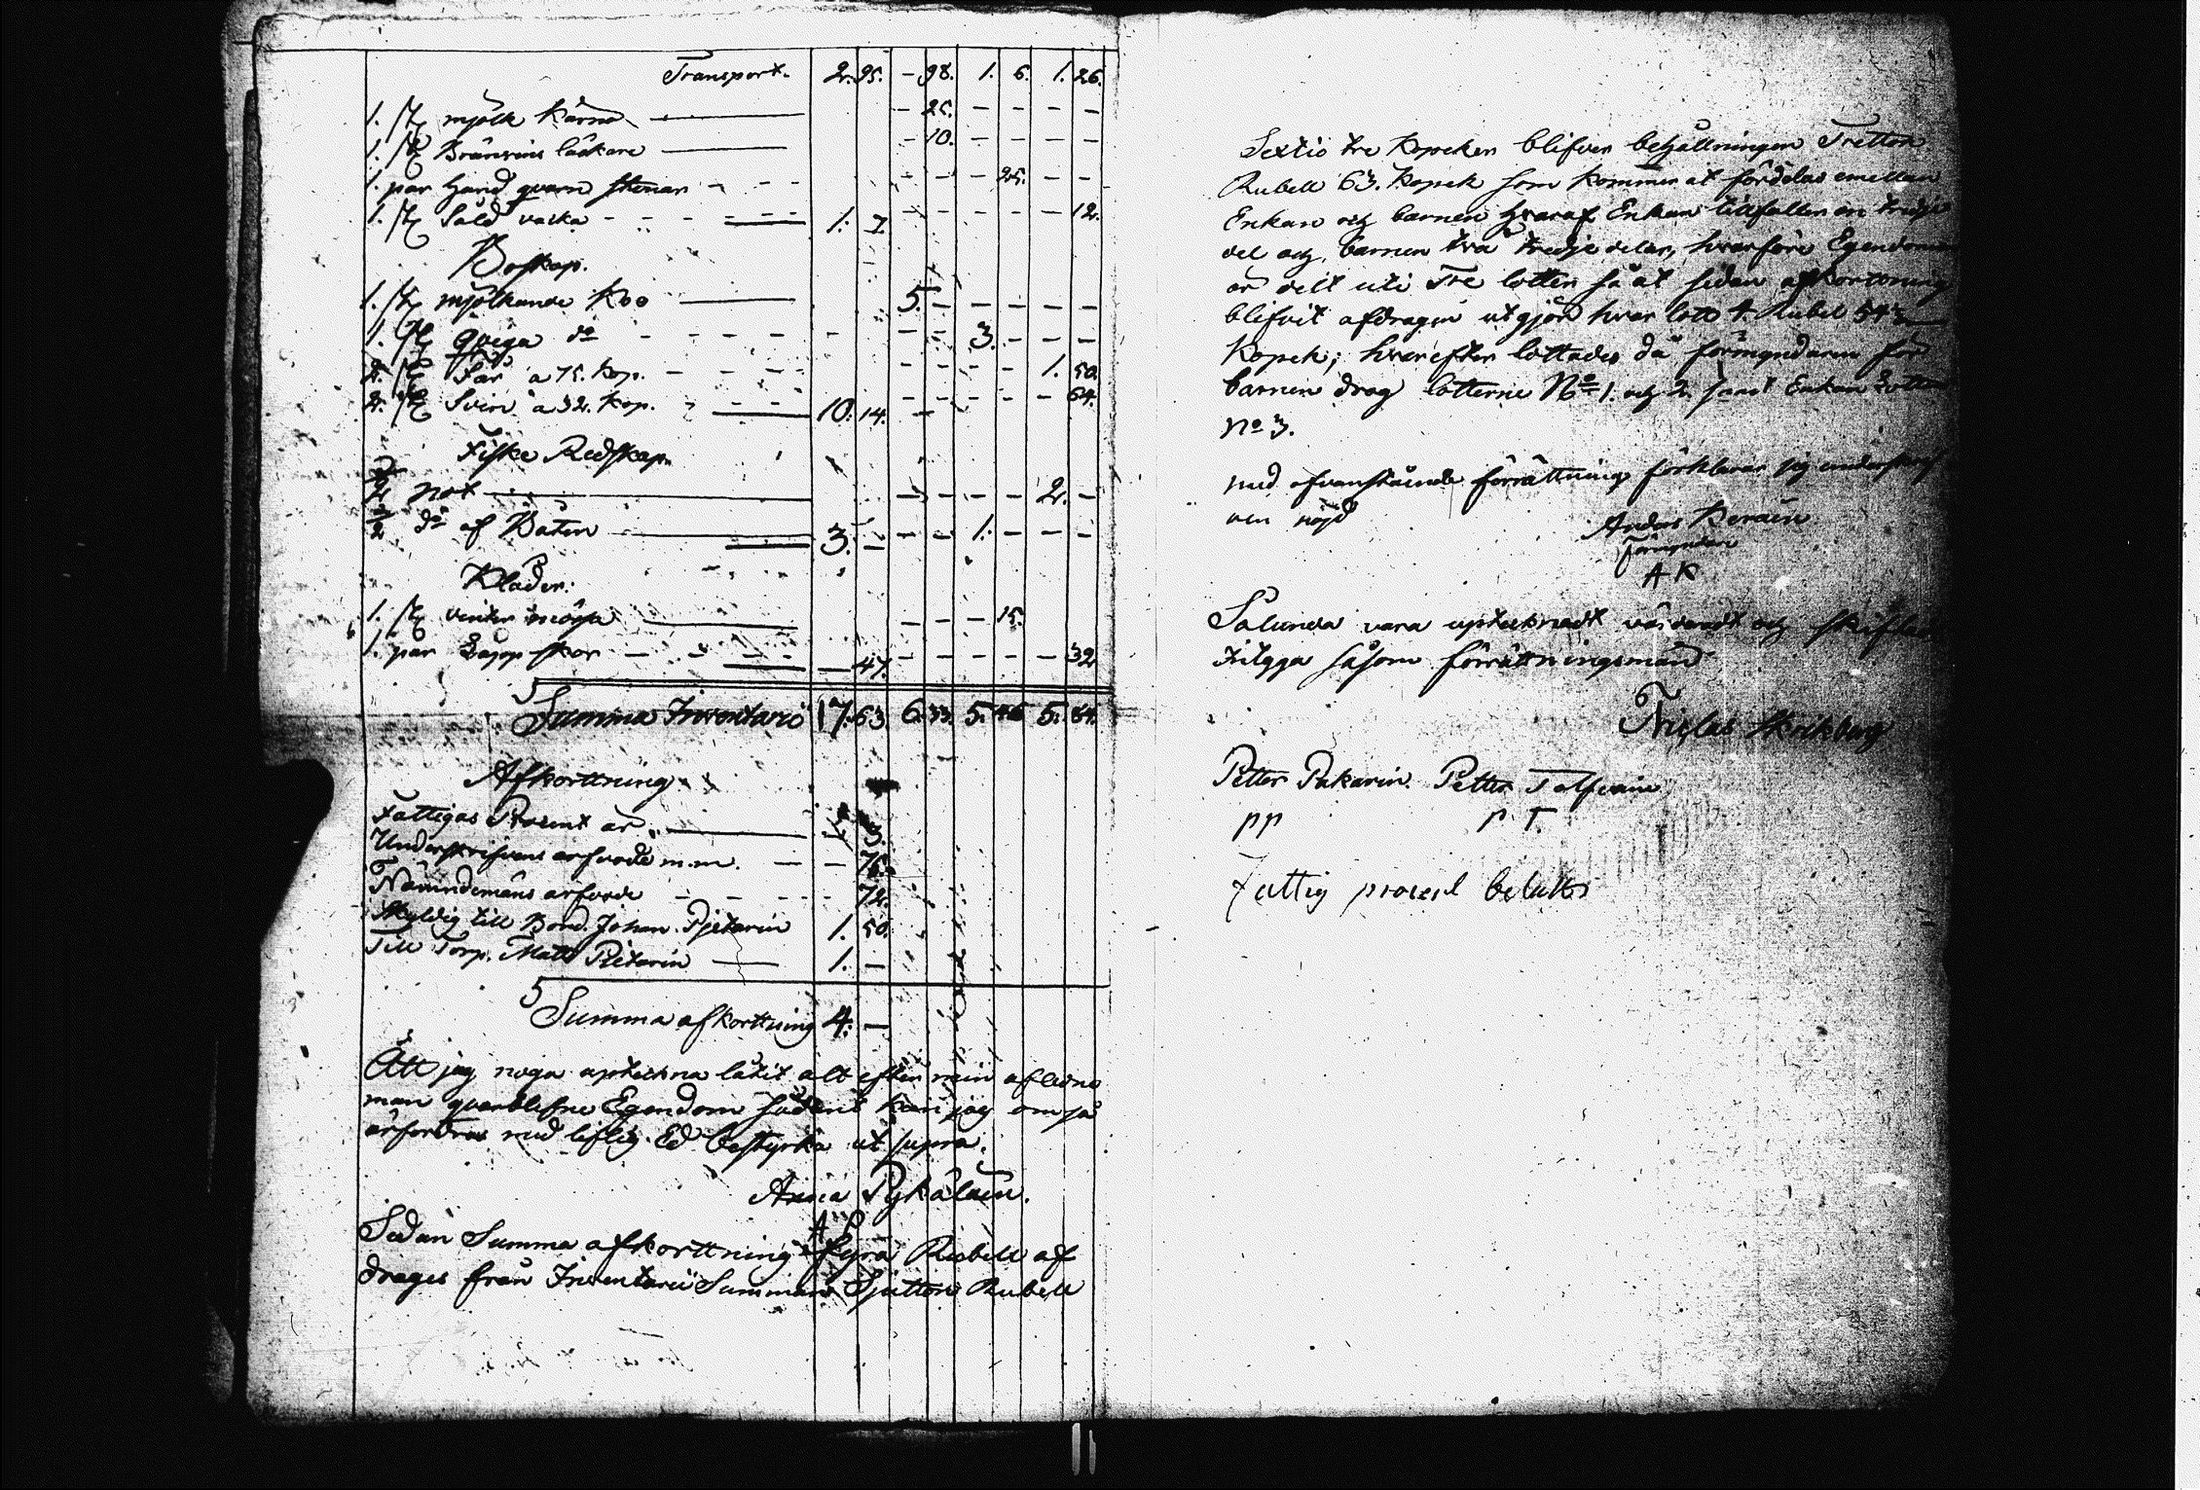 Transport. 2. 95. - 98. 1. 6. 1. 26.
1. st. mjölk kärna - 25. - - - -
1. st. Bränvins läckare - 10. - - - -
1. par Hand qvarn stenar - - - 25. - -
1. st. Såld vacka 1. 7. - - - - - 12.
Boskap.
1. st. mjölkande Koo 5. - - - - -
1. st. Qviga do - - 3. - - -
2. st. Får a 75. kop. - - - - 1. 50.
2. st. Svin a 32. kop. 10. 14. - - - - - 64.
Fiske Redskap
1/2 not - - - - 2. -
1/2 do af Båten 3. - - - 1. - - -
Kläder.
1. st. vinter mössa - - - 15.
1. par Lapp skor - 47. - - - - - 32.
Summa Inventarii 17. 63. 6. 33. 5. 46 5. 84.
Afkorttning
Fattigas Prosent är 3.
Underskrifvens arfvode m.m. - 75.
Nämndemäns arfvode - 72.
Skyldig till Bond. Johan Pjetarin 1. 50.
Till Torp. Matts Pietarin 1. -
Summa afkorttning 4. -
Att jag noga upteckna låtit alt efter min aflidne
man qvarblefne Egendom sådant kan jag om så
ärfordras med liflig Ed bestyrka ut supra.
Anna Pykäläin.
A P
Sedan Summa afkorttning fyra Rubell af
drages från Inventarii Summan Sjutton Rubell
Sextio tre kopeker blifver behållningen Tretton
Rubell 63. kopek som kommer at fördelas emellan
Enkan och barnen hvaraf Enkan tillfaller en tredje
del och barnen två tredje delar, hvarföre Egendomen
är delt uti Tre lotter så at sedan afkortning
blifvit afdragen utgjör hvar lott 4 Rubel 54 1/3
kopek; hvarefter lottades då förmyndaren för
barnen drog lotterne No 1. och 2. samt Enkan Lotten
No 3.
med ofvanstående förrättning förklarar jag underskref
ven nöjd
Anders Keräin
Förmyndare
A K
Sålunda vara uptecknadt värderadt och skiftadt
intyga såsom förrättningsmän
Niclas Skrikberg
Petter Pukarin. Petter Tolfvain
P P P T
Fattig procent betalts